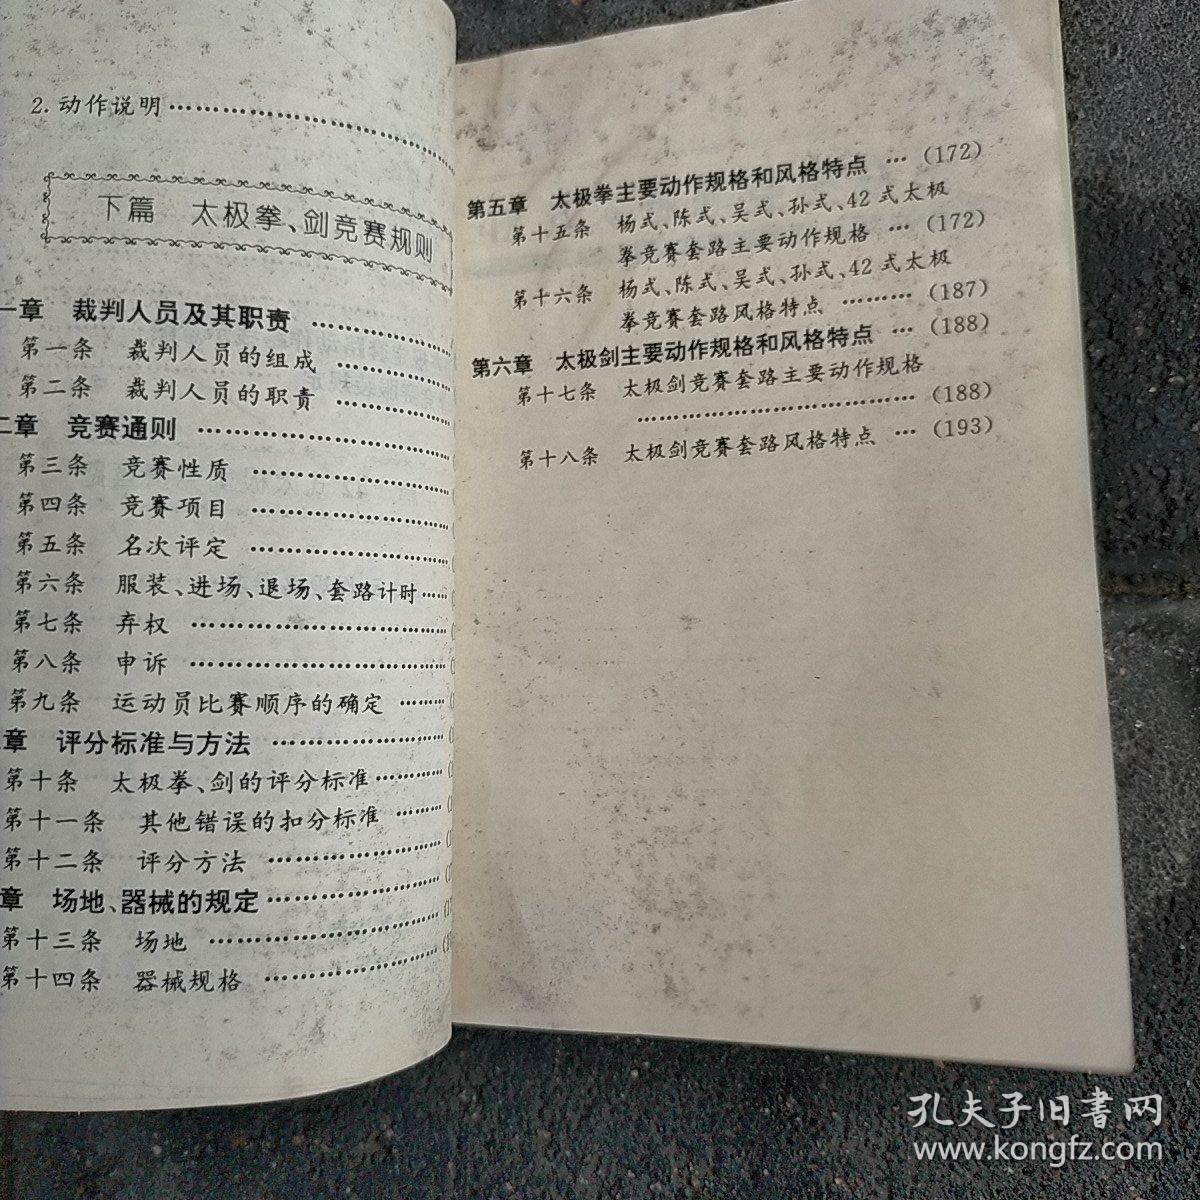 2. 动作说明……………………
下篇 太极拳、剑竞赛规则
一章 裁判人员及其职责 ……………
第一条 裁判人员的组成 …………
第二条 裁判人员的职责 …………
二章 竞赛通则 ……………………
第三条 竞赛性质 …………………
第四条 竞赛项目 …………………
第五条 名次评定 …………………
第六条 服装、进场、退场、套路计时……
第七条 弃权 ………………………
第八条 申诉 ………………………
第九条 运动员比赛顺序的确定 ………
章 评分标准与方法 ………………
第十条 太极拳、剑的评分标准………
第十一条 其他错误的扣分标准 ………
第十二条 评分方法 ………………
章 场地、器械的规定………………
第十三条 场地 ……………………
第十四条 器械规格 ………………
第五章 太极拳主要动作规格和风格特点 …(172)
第十五条 杨式、陈式、吴式、孙式、42 式太极
拳竞赛套路主要动作规格 …(172)
第十六条 杨式、陈式、吴式、孙式、42 式太极
拳竞赛套路风格特点 ………(187)
第六章 太极剑主要动作规格和风格特点 …(188)
第十七条 太极剑竞赛套路主要动作规格
………………………………(188)
第十八条 太极剑竞赛套路风格特点 …(193)
孔夫子旧書网
www.kongfz.com